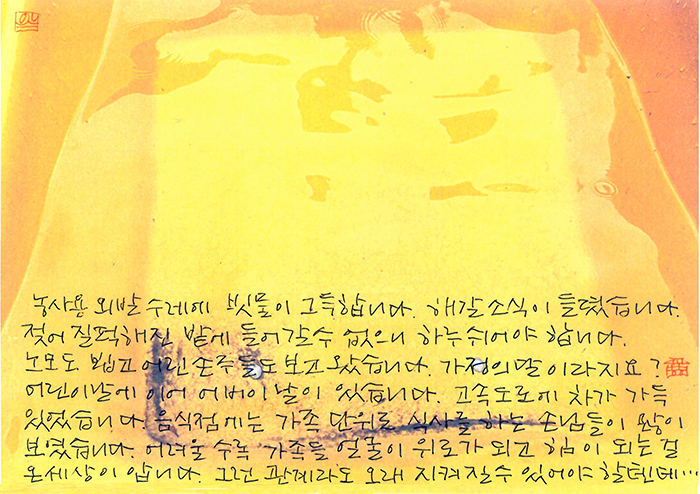 농사용 외발 수레에 빗물이 그득합니다. 해갈 소식이 들렸습니다.
젖어 질퍽해진 밭에 들어갈수 없으니 하루쉬어야 합니다.
노모도 뵙고 어린 손주들도 보고 왔습니다. 가정의달 이라지요?
어린이날에 이어 어버이날이 있습니다. 고속도로에 차가 가득
있었습니다. 음식점에는 가족 단위로 식사를 하는 손님들이 많이
보였습니다. 어려울 수록 가족들 얼굴이 위로가 되고 힘이 되는걸
온세상이 압니다. 그런 관계라도 오래 지켜질수 있어야 할텐데…